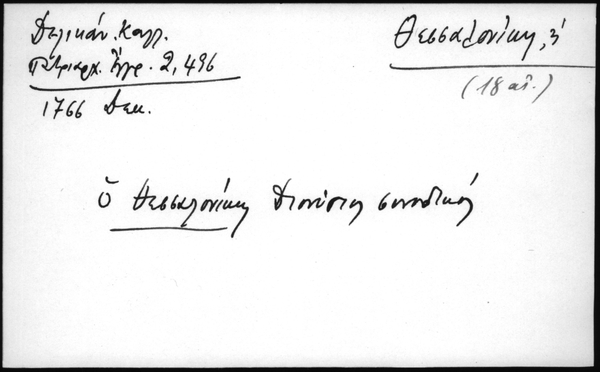 Δελικάν. Καλλ.
Πατριαρχ. Ἔγγρ. 2, 496
1766 Δεκ.
Θεσσαλονίκη, ἡ
(18 αἰ.)
ὁ Θεσσαλονίκης Διονύσιος συνοδικός